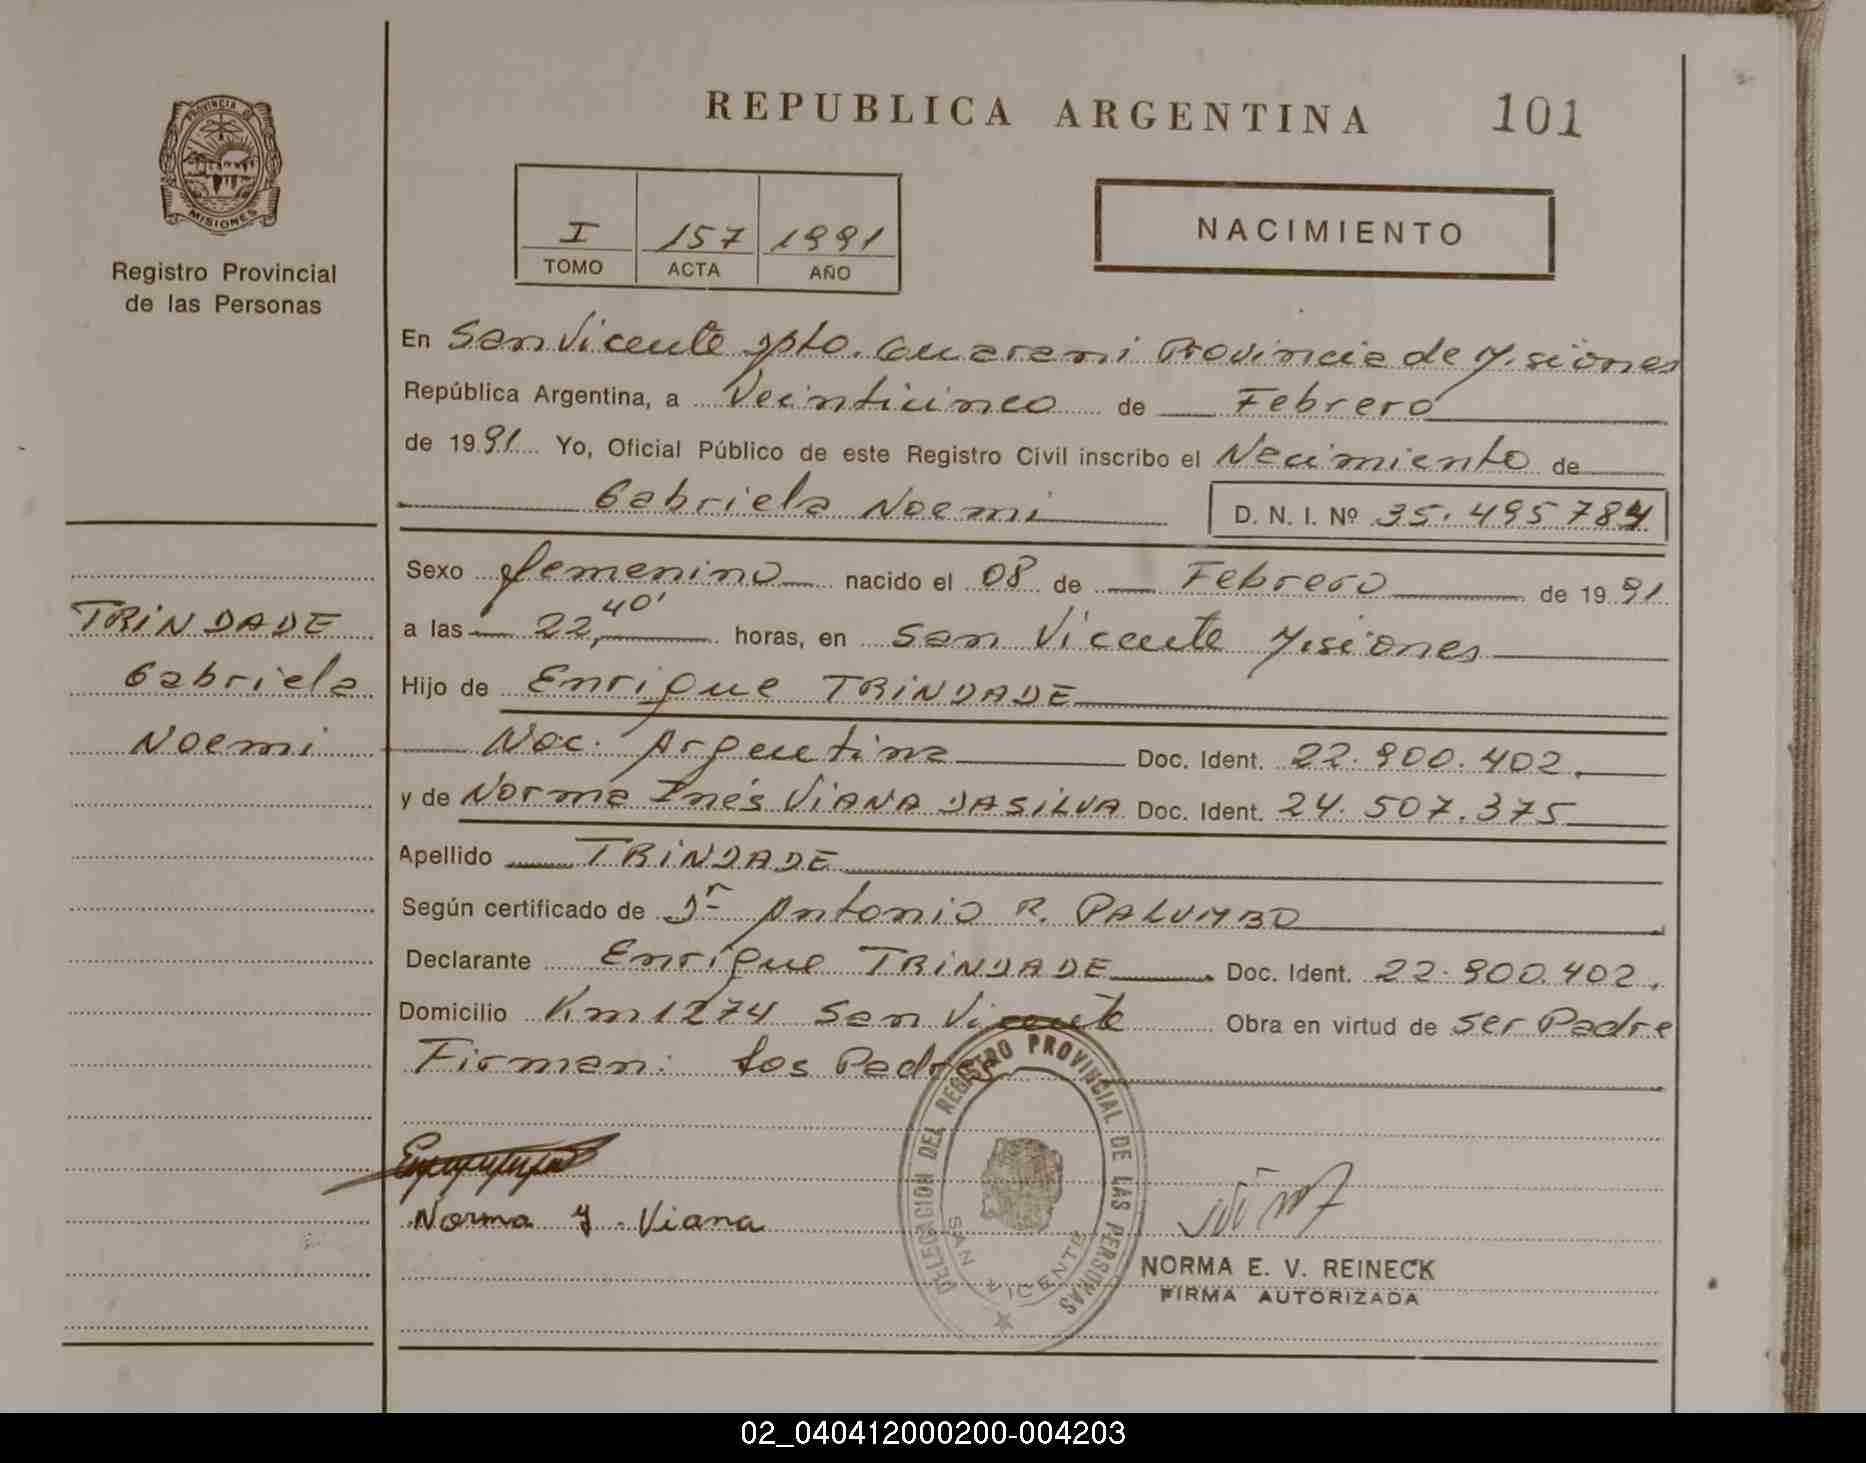 PROVINCIA DE
MISIONES
Registro Provincial
de las Personas
REPUBLICA ARGENTINA 101
I 157 1991
TOMO ACTA AÑO
NACIMIENTO
En San Vicente Dpto. Guarani Provincia de Misiones
República Argentina, a Veinticinco de Febrero
de 1991 Yo, Oficial Público de este Registro Civil inscribo el Nacimiento de
Gabriela Noemi D. N. I. Nº 35.495.784
Sexo femenino nacido el 08 de Febrero de 1991
a las 22,40' horas, en San Vicente Misiones
Hijo de Enrique TRINDADE
Nac. Argentina Doc. Ident. 22.900.402.
y de Norma Inés VIANA DASILVA Doc. Ident. 24.507.375
Apellido TRINDADE
Según certificado de Dr Antonio R. PALUMBO
Declarante Enrique TRINDADE Doc. Ident. 22.900.402.
Domicilio Km 1274 San Vicente Obra en virtud de ser Padre
Firman: los Padres
TRINDADE
Gabriela
Noemi
Norma Y. Viana
DELEGACION DEL REGISTRO PROVINCIAL DE LAS PERSONAS
SAN VICENTE
NORMA E. V. REINECK
FIRMA AUTORIZADA
02_040412000200-004203